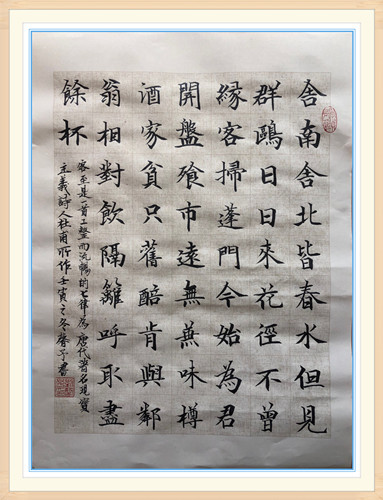 舍南舍北皆春水但見
群鷗日日來花徑不曾
緣客掃蓬門今始為君
開盤飱市遠無兼味樽
酒家貧只舊醅肯與鄰
翁相對飲隔籬呼取盡
餘杯
客至是一首工整而流暢的七律為唐代著名現實
主義詩人杜甫所作壬寅之冬馨予書